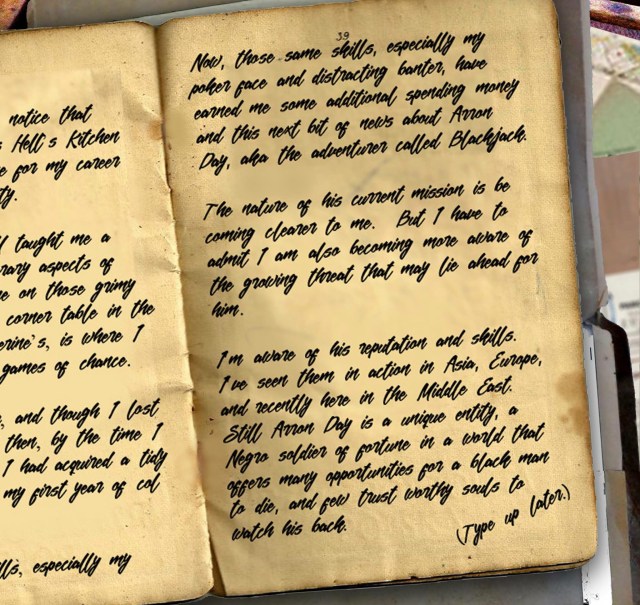 notice that
Hell's Kitchen
for my career
ty.
taught me a
rary aspects of
on those grimy
corner table in the
erine's, is where I
games of chance.
, and though I lost
then, by the time I
I had acquired a tidy
my first year of col
lls, especially my
39
Now, those same skills, especially my
poker face and distracting banter, have
earned me some additional spending money
and this next bit of news about Arron
Day, aka the adventurer called Blackjack.
The nature of his current mission is be
coming clearer to me. But I have to
admit I am also becoming more aware of
the growing threat that may lie ahead for
him.
I'm aware of his reputation and skills.
I've seen them in action in Asia, Europe,
and recently here in the Middle East.
Still Arron Day is a unique entity, a
Negro soldier of fortune in a world that
offers many opportunities for a black man
to die, and few trust worthy souls to
watch his back.
(Type up later.)